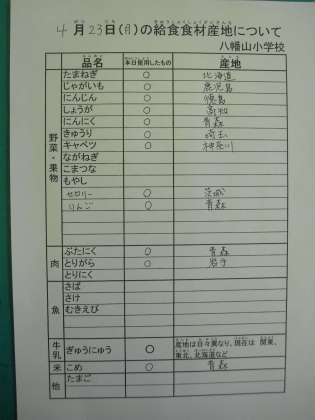 4月23日(月)の給食食材産地について
八幡山小学校
品名 本日使用したもの 産地
野菜・果物
たまねぎ ○ 北海道
じゃがいも ○ 鹿児島
にんじん ○ 徳島
しょうが ○ 高知
にんにく ○ 青森
きゅうり ○ 埼玉
キャベツ ○ 神奈川
ながねぎ
こまつな
もやし
セロリー ○ 茨城
りんご ○ 青森
肉
ぶたにく ○ 青森
とりがら ○ 岩手
とりにく
魚
さば
さけ
むきえび
牛乳
ぎゅうにゅう ○ 産地は日々異なり、現在は 関東、
東北、北海道など
米 こめ ○ 青森
他 たまご